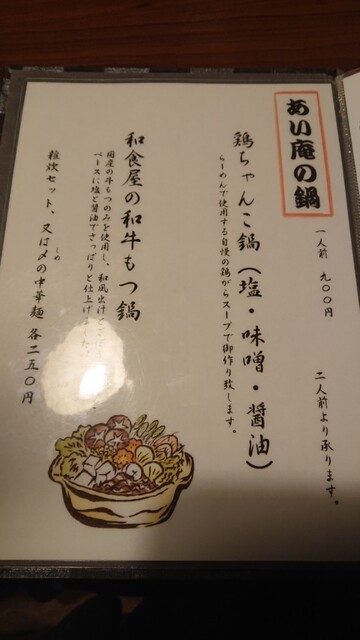 あい庵の鍋
一人前 九〇〇円 二人前より承ります。
鶏ちゃんこ鍋(塩・味噌・醤油)
らーめんで使用する自慢の鶏がらスープで御作り致します。
和食屋の和牛もつ鍋
国産の牛もつのみを使用し、和風出汁
ベースに塩と醤油でさっぱりと仕上げ
しめ
雑炊セット、又は〆の中華麺 各二五〇円